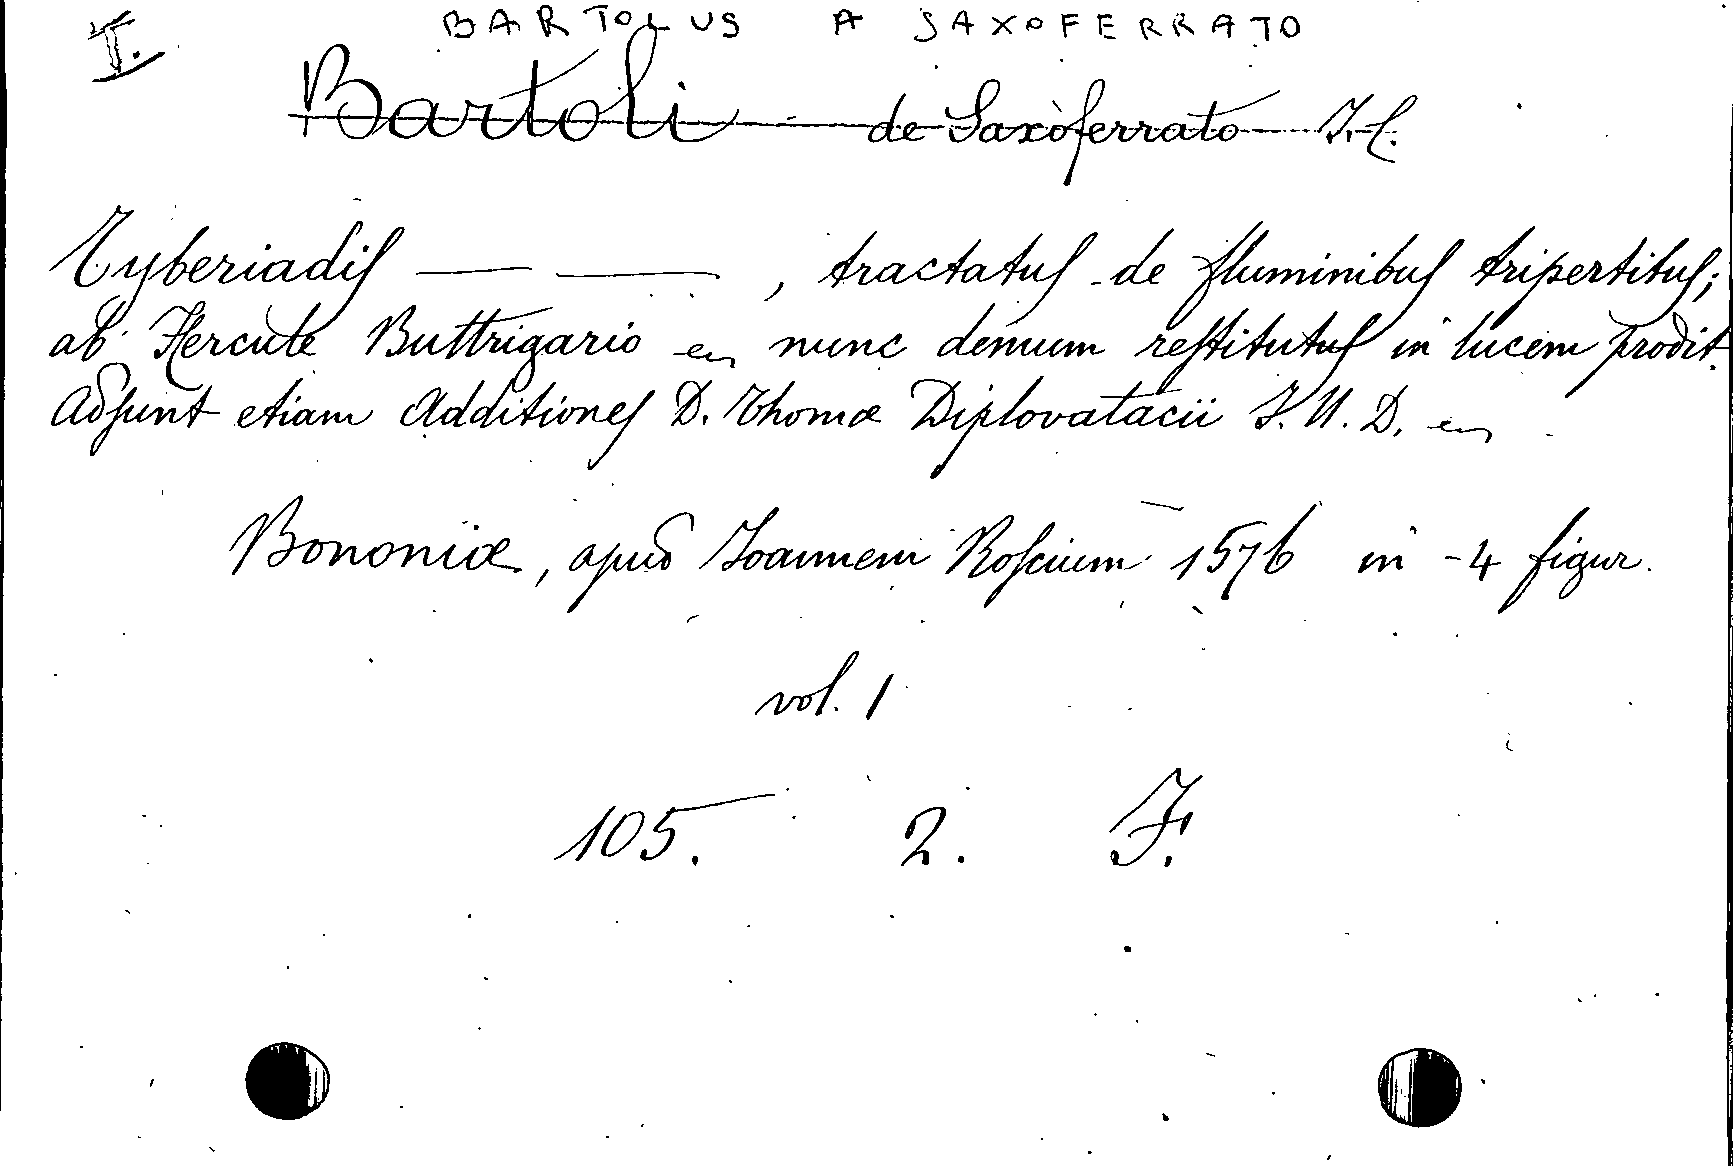 I.
BARTOLUS A SAXOFERRATO
Bartoli de Saxoferrato J.C.
Tyberiadis — — , tractatus de fluminibus tripertitus;
ab Hercule Buttrigario nunc demum restitutus in lucem prodit.
Adsunt etiam Additiones D. Thomæ Diplovatacii J.U.D.
Bononiæ, apud Joannem Roscium 1576 in-4 figur.
vol. 1
105. 2. F.